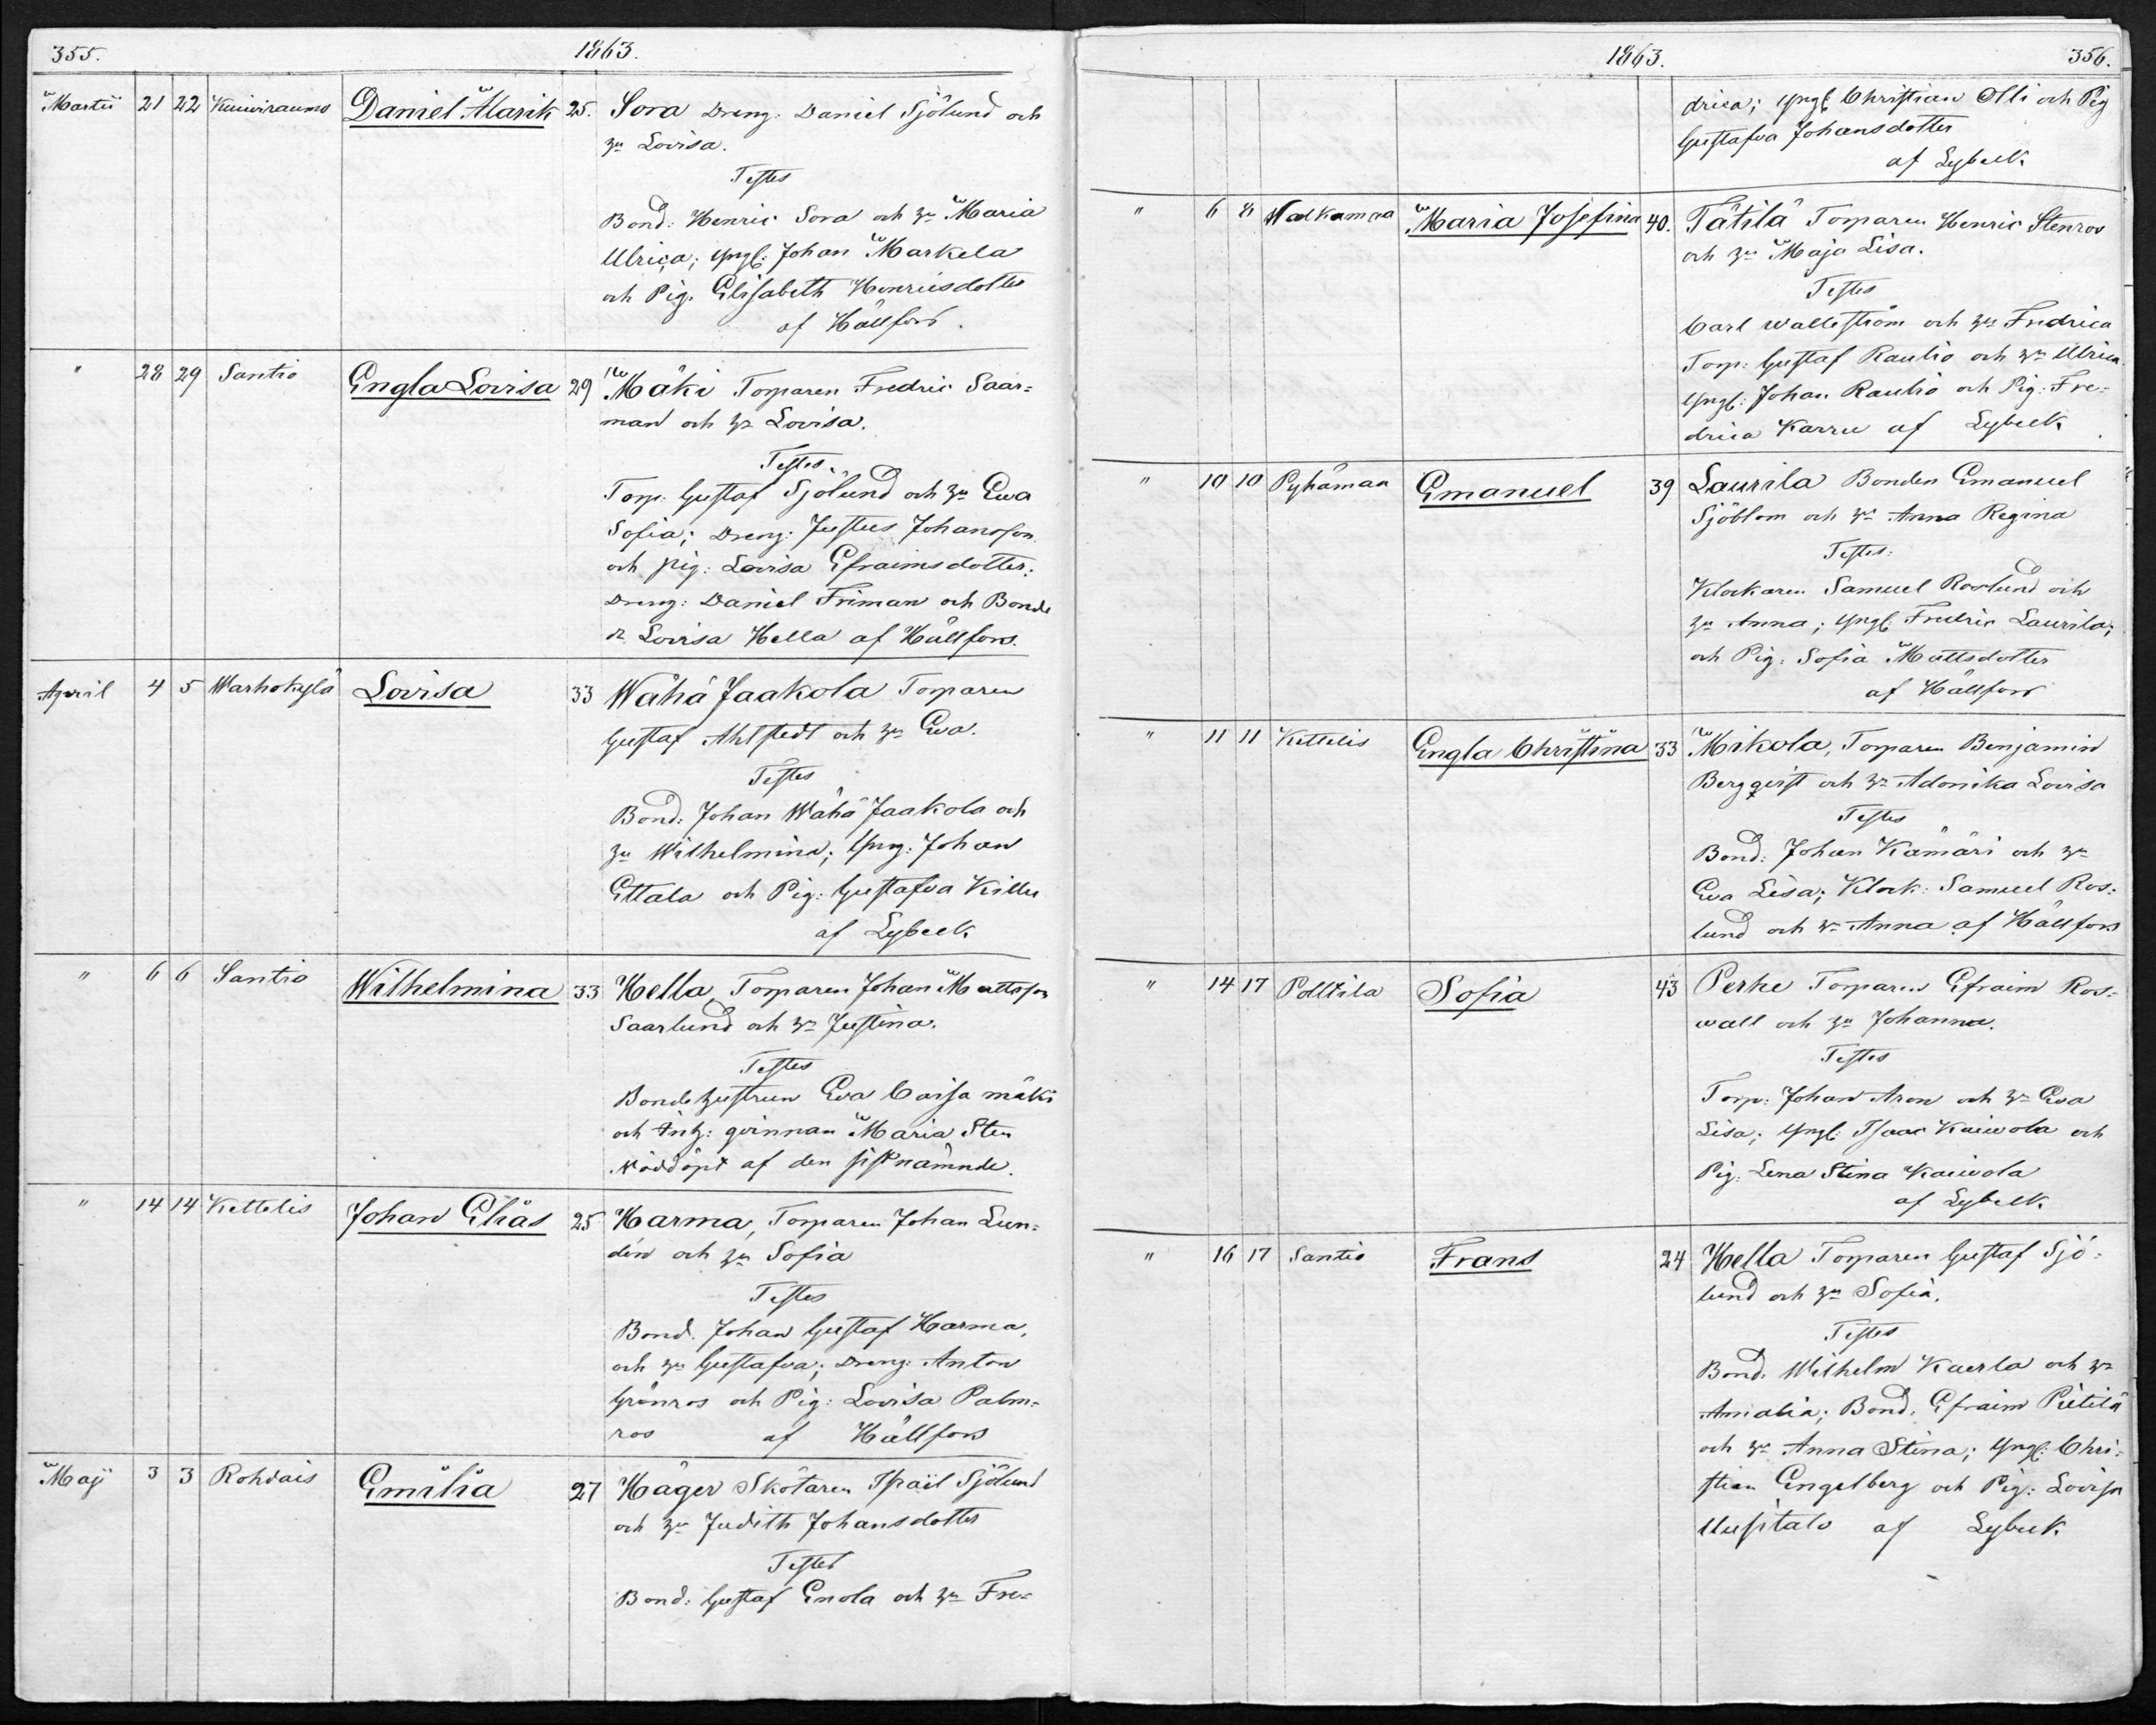 355.
1863.
Martii 21 22 Kuiviraums Daniel Alarik 25. Sora Dreng: Daniel Sjölund och
hu Lovisa.
Testes
Bond: Henric Sora och hu Maria
Ulrica; Yngl: Johan Markela
och Pig. Elisabeth Henricsdotter
af Hällfors.
" 28 29 Santio Engla Lovisa 29 Mäki Torparen Fredric Saar=
man och hu Lovisa.
Testes.
Torp: Gustaf Sjölund och hu Ewa
Sofia; Dreng: Justus Johansson
och pig: Lovisa Efraimsdotter;
Dreng: Daniel Friman och Bonde
d. Lovisa Hella af Hällfors.
April 4 5 Warhokylä Lovisa 33 Wähä Jaakola Torparen
Gustaf Ahlstedt och hu Eva.
Testes
Bond: Johan Wähä Jaakola och
hu Wilhelmina; Yng: Johan
Ettala och Pig: Gustafva Killu
af Lybeck
" 6 6 Santio Wilhelmina 33 Hella, Torparen Johan Mattsson
Saarlund och hu Justina.
Testes
Bondehustrun Eva Caisa mäki
och Inh: qvinnan Maria Sten
Nöddöpt af den sistnämnde.
" 14 14 Kettelis Johan Elias 25 Harma, Torparen Johan Lun=
dén och hu Sofia
Testes
Bond. Johan Gustaf Harma,
och hu Gustafva; Dreng: Anton
Grönros och Pig: Lovisa Palm=
ros af Hällfors
Maji 3 3 Rohdais Emilia 27 Häger Skötaren Isrâil Sjölund
och hu Judith Johansdotter
Testes
Bond: Gustaf Enola och hu Fre=
1863.
356.
drica; Yngl: Christian Olli och Pig
Gustafva Johansdotter
af Lybeck
" 6 8 Walkamaa Maria Josefina 40. Tätilä Torparen Henric Stenros
och hu Maja Lisa.
Testes
Carl Wallström och hu Fredrica
Torp: Gustaf Raulio och hu Ulrica
Yngl: Johan Raulio och Pig: Fre=
drica Karru af Lybeck
" 10 10 Pyhämaa Emanuel 39 Laurila Bonden Emanuel
Sjöblom och hu Anna Regina
Testes:
Klockaren Samuel Roslund och
hu Anna; Yngl: Fredric Laurila;
och Pig: Sofia Mattsdotter
af Hällfors
" 11 11 Kettelis Engla Christina 33 Mikola, Torparen Benjamin
Bergqvist och hu Adonika Lovisa
Testes
Bond: Johan Kämäri och hu
Eva Lisa; Klock: Samuel Ros=
lund och hu Anna af Hällfors
" 14 17 Polttila Sofia 43 Perhe Torparen Efraim Ros=
wall och hu Johanna.
Testes
Torp: Johan Aron och hu Eva
Lisa; Yngl: Isaac Kaiwola och
Pig: Lena Stina Kaiwola
af Lybeck
" 16 17 Santio Frans 24 Hella Torparen Gustaf Sjö=
lund och hu Sofia.
Testes
Bond. Wilhelm Kaerla och hu
Amalia; Bond. Efraim Pietilä
och hu Anna Stina; Yngl: Chri=
stian Engelberg och Pig: Lovisa
Uusitalo af Lybeck